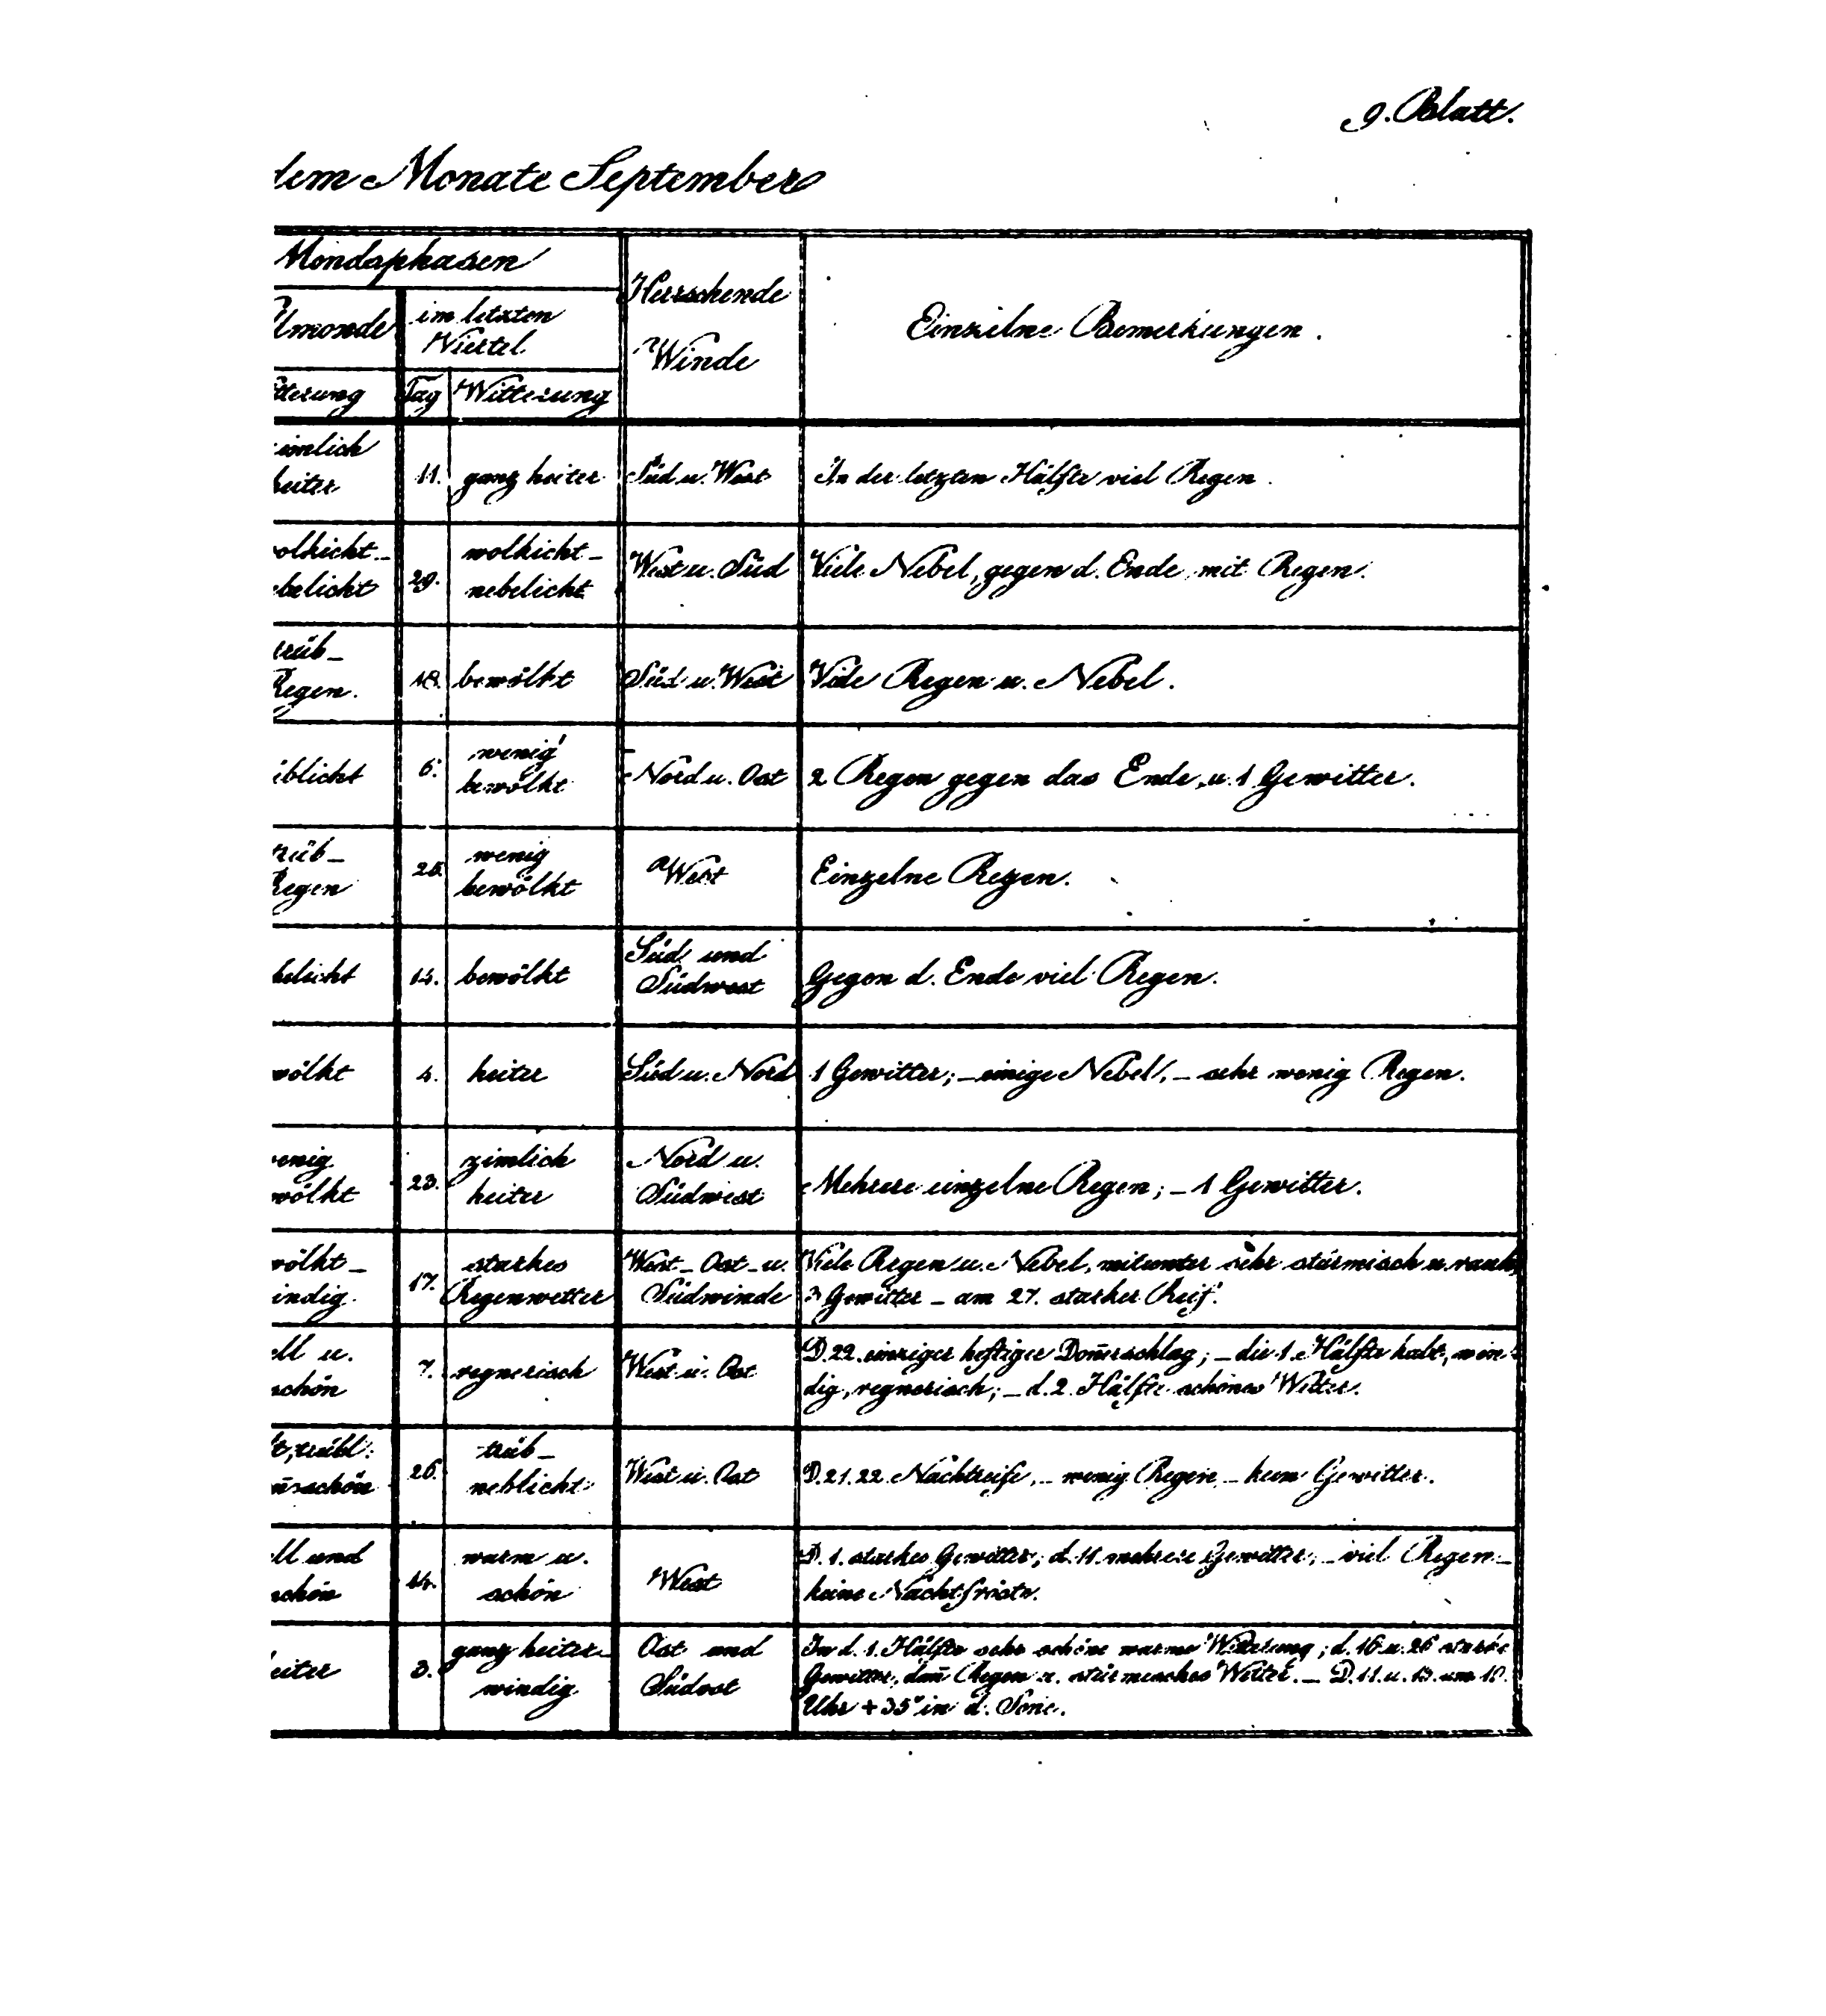 9. Blatt.
dem Monate September
Mondsphasen
lmonde
im letzten
Viertel
Herrschende
Winde
Einzelne Bemerkungen.
tterung
Tag
Witterung
imlich
heiter
11.
ganz heiter
Süd u. West
In der letzten Hälfte viel Regen.
olkicht_
ebelicht
29.
wolkicht_
nebelicht
West u. Süd
Viele Nebel, gegen d. Ende mit Regen.
trüb_
Regen.
18.
bewölkt
Süd u. West
Viele Regen u. Nebel.
iblicht
6.
wenig
bewölkt
Nord u. Ost
2 Regen gegen das Ende, u. 1 Gewitter.
rüb_
Regen
25.
wenig
bewölkt
West
Einzelne Regen.
belicht
14.
bewölkt
Süd und
Südwest
Gegen d. Ende viel Regen.
wölkt
4.
heiter
Süd u. Nord
1 Gewitter; _ einige Nebel, _ sehr wenig Regen.
wenig
wölkt
23.
zimlich
heiter
Nord u.
Südwest
Mehrere einzelne Regen; _ 1 Gewitter.
wölkt _
indig.
17.
starkes
Regenwetter
West _ Ost _ u.
Südwinde
Viele Regen u. Nebel, mitunter sehr stürmisch u. rauh,
3 Gewitter _ am 27. starker Reif.
ell u.
schön
7.
regnerisch
West u. Ost
D. 22. einziger heftiger Don̄erschlag; _ die 1. Hälfte kalt, win-
dig, regnerisch; _ d. 2. Hälfte schönes Wetter.
t, trübl.
n̄ schön
26.
trüb _
neblicht
West u. Ost
D. 21. 22. Nachtreife, _ wenig Regen _ kein Gewitter.
ell und
schön
14.
warm u.
schön
West
D. 1. starkes Gewitter; d. 11. mehrere Gewitter; _ viel Regen _
keine Nachtfröste.
eiter
3.
ganz heiter _
windig
Ost und
Südost
In d. 1. Hälfte sehr schöne warme Witterung; d. 16. u. 26 starke
Gewitter, dan̄ Regen u. stürmisches Wetter. _ D. 11. u. 13. um 10.
Uhr + 35° in d. Sone.